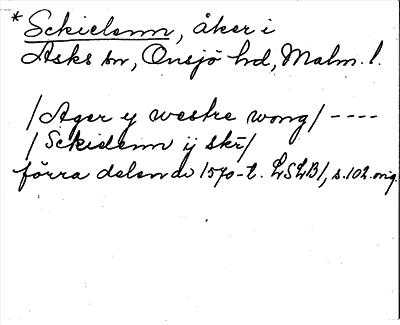 * Sckielsnn, åker i
Asks sn, Onsjö hd, Malm. l.
/Ager y westre wong/ ----
/Sckidsnn ij skr/
förra delen av 1570-t. LSLB/, s. 102. orig.